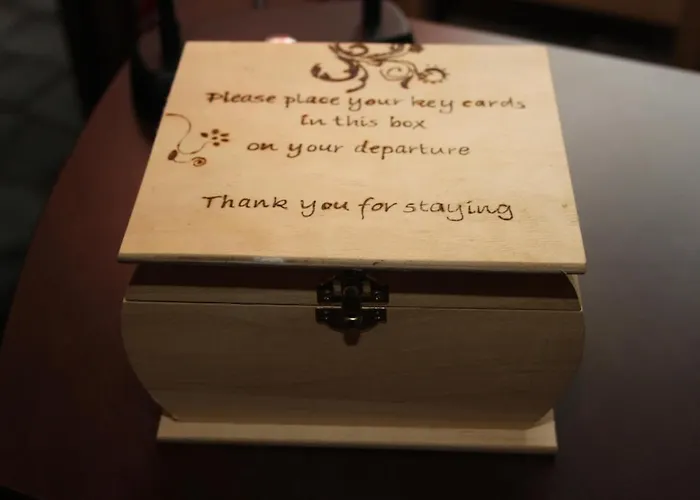 Please place your key cards
In this box
on your departure
Thank you for staying